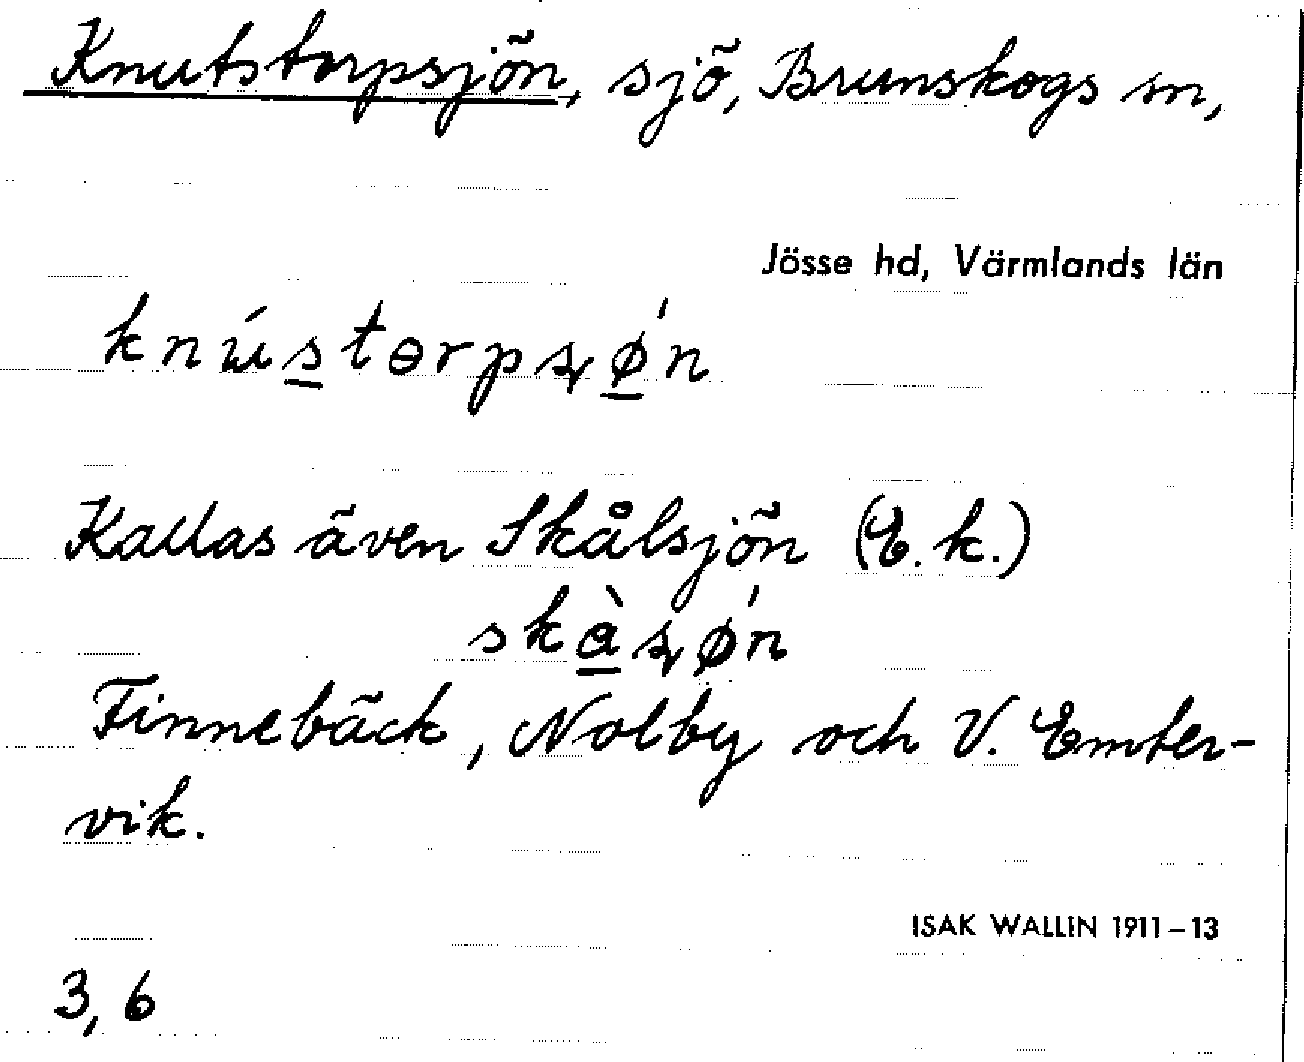 Knutstorpsjön, sjö, Brunskogs sn,
Jösse hd, Värmlands län
Kallas även Skålsjön (E. k.)
Finnebäck, Nolby och V. Emter-
vik.
ISAK WALLIN 1911–13
3, 6